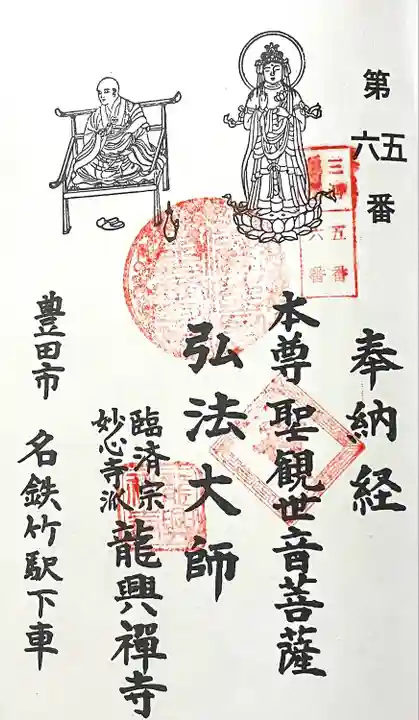 第五六番
奉納経
三河
五六番
本尊聖観世音菩薩
弘法大師
臨済宗
妙心寺派
龍興禅寺
豊田市 名鉄竹駅下車